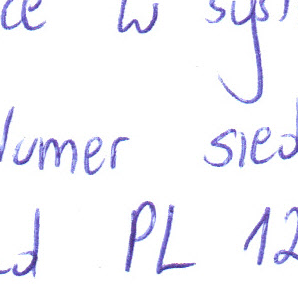 ce w syst
Numer sied
d PL 12